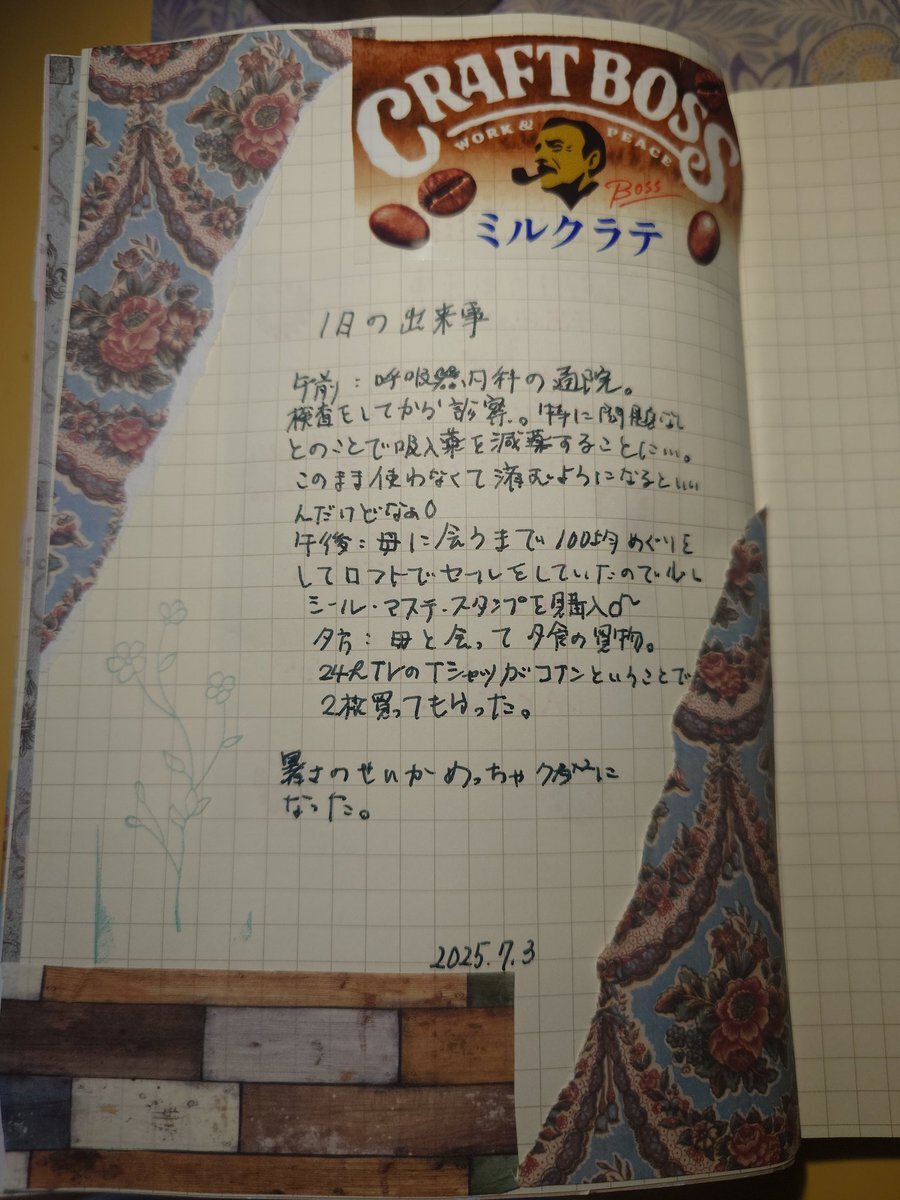 CRAFT BOSS
WORK & PEACE
Boss
ミルクラテ
1日の出来事
午前：呼吸器内科の通院。
検査をしてから診察。特に問題なし
とのことで吸入薬を減薬することに…。
このまま使わなくて済むようになるといい
んだけどなぁ
午後：母に会うまで100均めぐりを
してロフトでセールをしていたので少し
シール・マステ・スタンプを購入
夕方：母と会って夕食の買物。
24hTVのTシャツがコナンということで
2枚買ってもらった。
暑さのせいかめっちゃクタクタに
なった。
2025.7.3